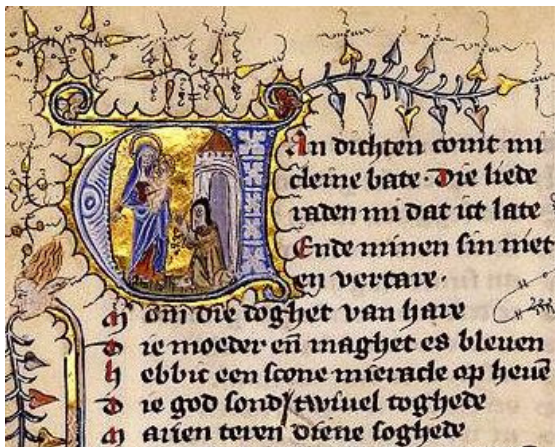 Van dichten comt mi
cleine bate Die liede
raden mi dat ict late
Ende minen sin niet
en vertare.
M om die doghet van hare
Die moeder eñ maghet es bleuen
Hebbic een scone mieracle op heuē
Die god sond' twiuel toghede
Marien teren diene soghede